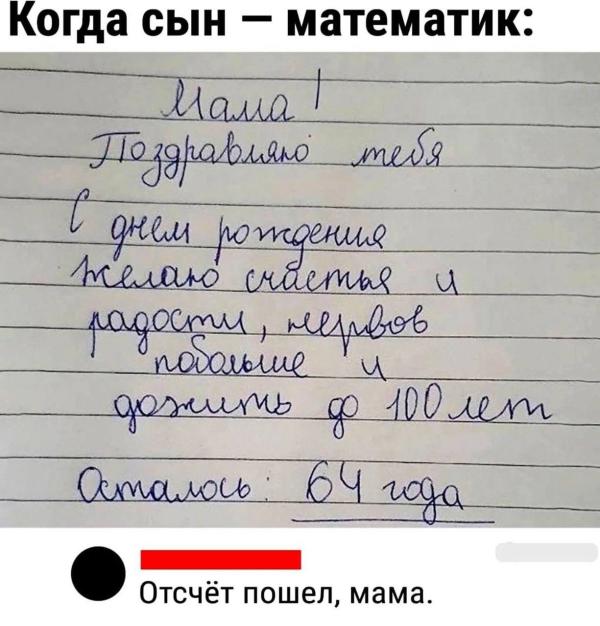 Когда сын — математик:
Мама!
Поздравляю тебя
С днем рождения
желаю счастья и
радости, нервов
побольше и
дожить до 100 лет
Осталось: 64 года
Отсчёт пошел, мама.